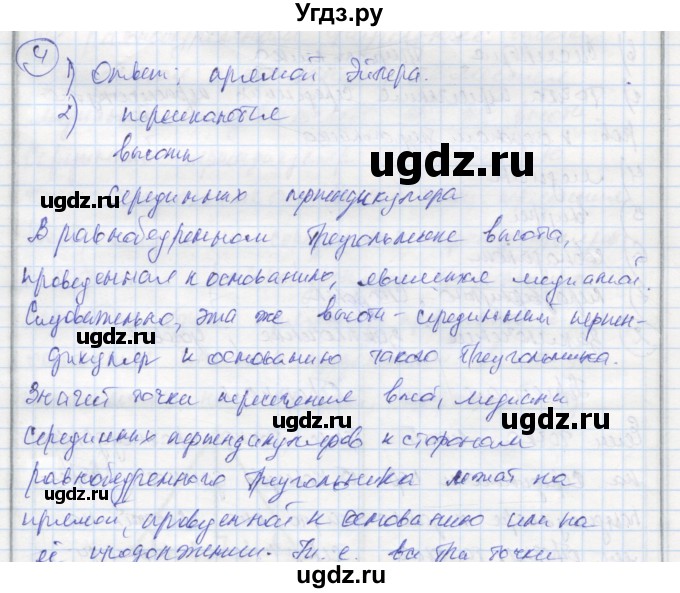 Угдз.ру
4
1) Ответ: прямой Эйлера.
2) пересекаются
высоты
ugdz.ru
ugdz.ru
Серединных перпендикуляра
ugdz.ru
В равнобедренном треугольнике высота,
проведенная к основанию, является медианой.
Следовательно, эта же высота - серединным перпен-
ugdz.ru
дикуляр к основанию такого треугольника.
Значит точки пересечения высот, медианы
ugdz.ru
серединных перпендикуляров к сторонам
ugdz.ru
равнобедренного треугольника лежат на
прямой, проведенной к основанию или на
ugdz.ru
её продолжении. Т. е. все три точки
ugdz.ru